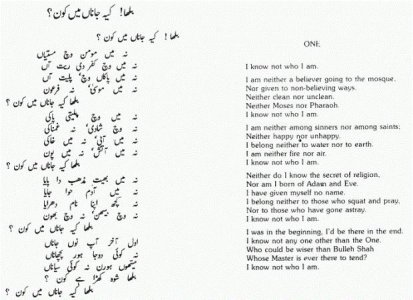 بلھا! کیہ جاناں میں کون؟
بلھا! کیہ جاناں میں کون؟
نہ میں مومن وچ مسیتاں
نہ میں وچ کفر دی ریت آں
نہ میں پاکاں وچ پلیت آں
نہ میں موسیٰ نہ فرعون
بلھا کیہ جاناں میں کون؟
نہ میں وچ پلیتی پاکی
نہ وچ شادی، نہ غمناکی
نہ میں آبی نہ میں خاکی
نہ میں آتش نہ میں پون
بلھا کیہ جاناں میں کون؟
نہ میں بھیت مذہب دا پایا
نہ میں آدم حوا جایا
نہ کچھ اپنا نام دھرایا
نہ وچ بیٹھن نہ وچ بھون
بلھا کیہ جاناں میں کون؟
اول آخر آپ نوں جاناں
نہ کوئی دوجا ہور پچھاناں
میتھوں ہور نہ کوئی سیاناں
بلھا شوہ کھڑا ہے کون؟
بلھا کیہ جاناں میں کون؟
ONE
I know not who I am.
I am neither a believer going to the mosque,
Nor given to non-believing ways.
Neither clean nor unclean.
Neither Moses nor Pharaoh.
I know not who I am.
I am neither among sinners nor among saints;
Neither happy nor unhappy.
I belong neither to water nor to earth.
I am neither fire nor air.
I know not who I am.
Neither do I know the secret of religion,
Nor am I born of Adam and Eve.
I have given myself no name.
I belong neither to those who squat and pray,
Nor to those who have gone astray.
I know not who I am.
I was in the beginning, I'd be there in the end.
I know not any one other than the One.
Who could be wiser than Bulleh Shah
Whose Master is ever there to tend?
I know not who I am.